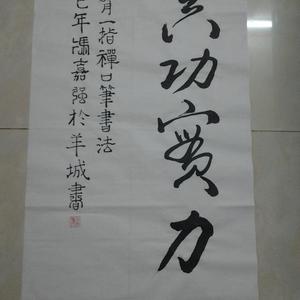 功實力
一指禪口筆書法
年馮嘉强於羊城書